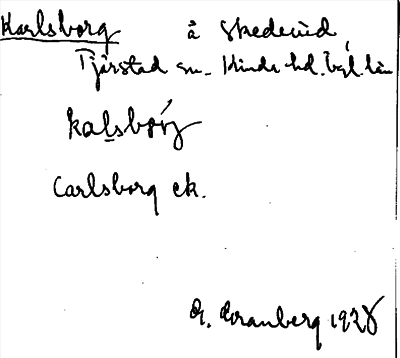 Karlsborg å Skedevid,
Tjärstad sn. Kinda hd. Ögl. län
kalsbórg
Carlsborg ek.
A. Granberg 1928